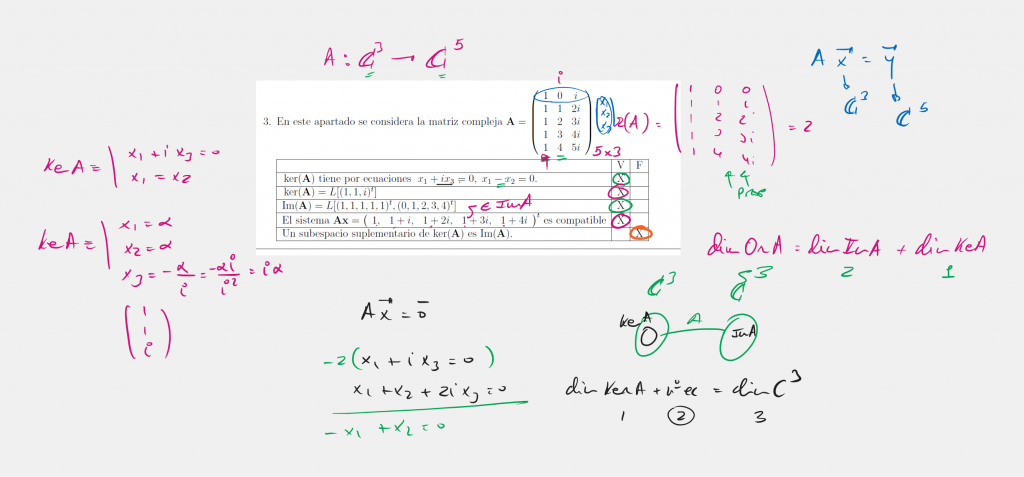 A : ℂ³ → ℂ⁵
i
A x⃗ = y⃗
ℂ³ ℂ⁵
3. En este apartado se considera la matriz compleja A =
1 0 i
1 1 2i
1 2 3i
1 3 4i
1 4 5i
x₁
x₂
x₃
5x3
r(A) =
1 0 0
1 1 i
1 2 2i
1 3 3i
1 4 4i
= 2
Prop
V F
ker(A) tiene por ecuaciones x₁ + ix₃ = 0, x₁ − x₂ = 0. X
ker(A) = L[(1, 1, i)ᵗ] X
Im(A) = L[(1, 1, 1, 1, 1)ᵗ, (0, 1, 2, 3, 4)ᵗ] X
ȳ ∈ Im A
El sistema Ax = ( 1, 1 + i, 1 + 2i, 1 + 3i, 1 + 4i )ᵗ es compatible X
Un subespacio suplementario de ker(A) es Im(A). X
Ke A =
x₁ + i x₃ = 0
x₁ = x₂
Ke A =
x₁ = α
x₂ = α
x₃ = -α/i = -αi/i² = iα
1
1
i
A x⃗ = 0̄
-2(x₁ + i x₃ = 0)
x₁ + x₂ + 2i x₃ = 0
-x₁ + x₂ = 0
dim Or A = dim Im A + dim Ke A
2 1
ℂ³ ℂ⁵
Ke A
0
A
Im A
dim Ker A + nº ec = dim C³
1 2 3